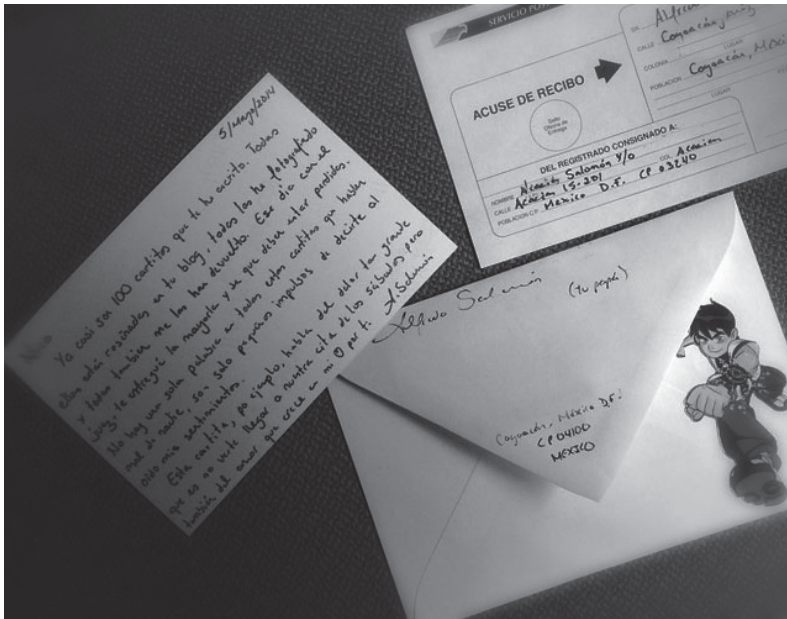 5/Mayo/2014
Ya casi son 100 cartitas que te he escrito. Todas
ellas están en tu blog, todas las he fotografiado
y todas también me las han devuelto. Ese día con el
juez, te entregué la mayoría y sé que deben estar perdidas.
No hay una sola palabra en todas estas cartitas que hablen
mal de nadie, son solo pequeños impulsos de decirte al
oído mis sentimientos.
Esta cartita, por ejemplo, habla del dolor tan grande
que es no verte llegar a nuestra cita de los sábados pero
también del amor que crece en mi por ti. A. Salomón
SERVICIO
ACUSE DE RECIBO
Sello
Oficina de
Entrega
CALLE Coyoacán,
COLONIA
LUGAR
POBLACION Coyoacán,
LUGAR
DEL REGISTRADO CONSIGNADO A:
NOMBRE Salomón y/o
CALLE Acacias 15-201 COL. Acacias
POBLACION C.P. Mexico D.F. CP 03240
Alfredo Salomón (tu papá)
Coyoacán, México D.F.
CP 04100
MEXICO